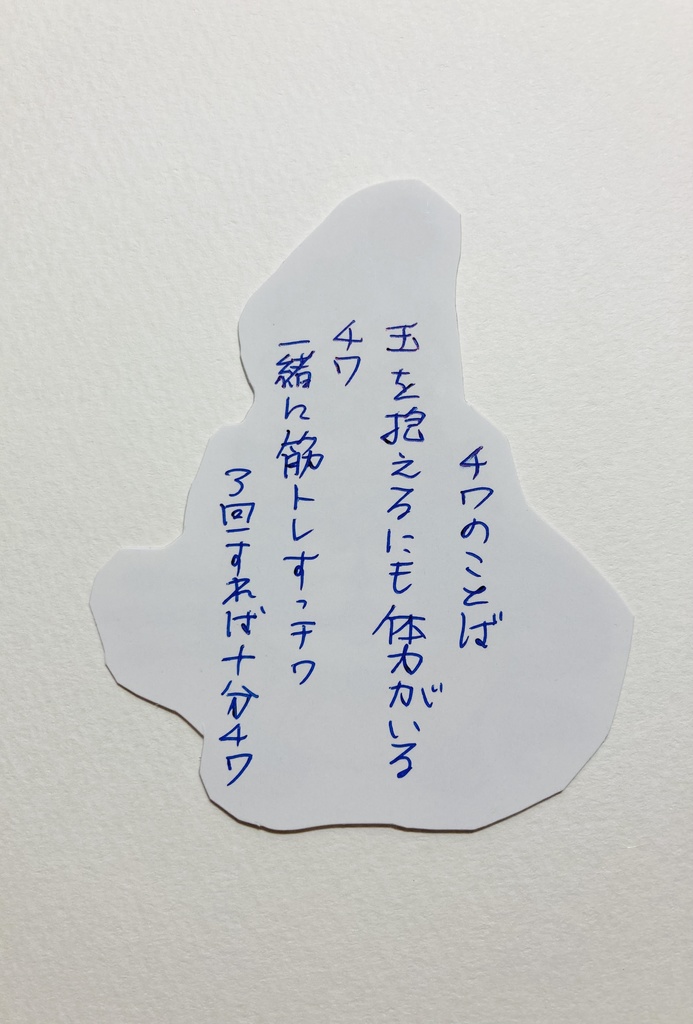 チワのことば
玉を抱えるにも体力がいる
チワ
一緒に筋トレすっチワ
3回すれば十分チワ